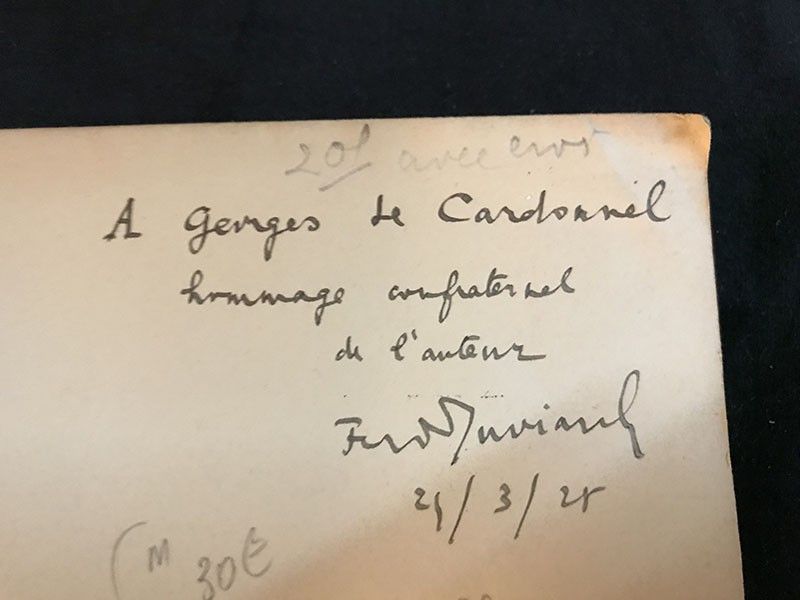 20f avec envoi
A Georges Le Cardonnel
hommage confraternel
de l'auteur
Ferd Duviard
29/3/28
(M 30€